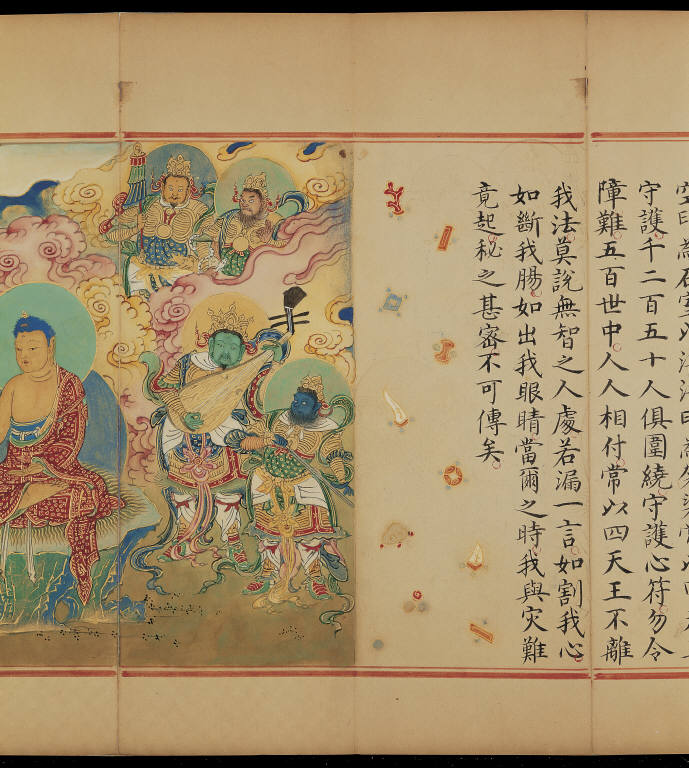 為石室以
守護千二百五十人俱圍繞守護心符勿令
障難五百世中人人相付常以四天王不離
我法莫說無智之人處若漏一言如割我心
如斷我腸如出我眼睛當爾之時我與灾難
竟起秘之甚密不可傳矣